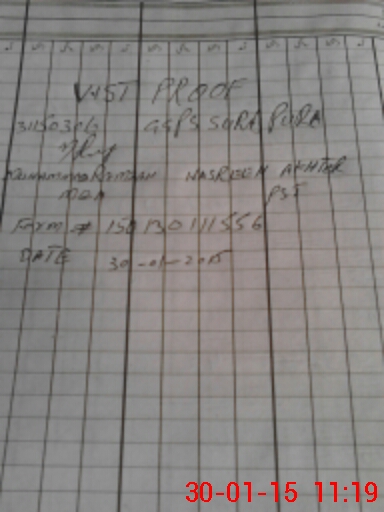 VIST PROOF
31150306 GGPS SURA PURA
Muhammad Ramzan NASREEN AKHTER
MEA PST
Form # 150130111556
DATE 30-01-2015
30-01-15 11:19